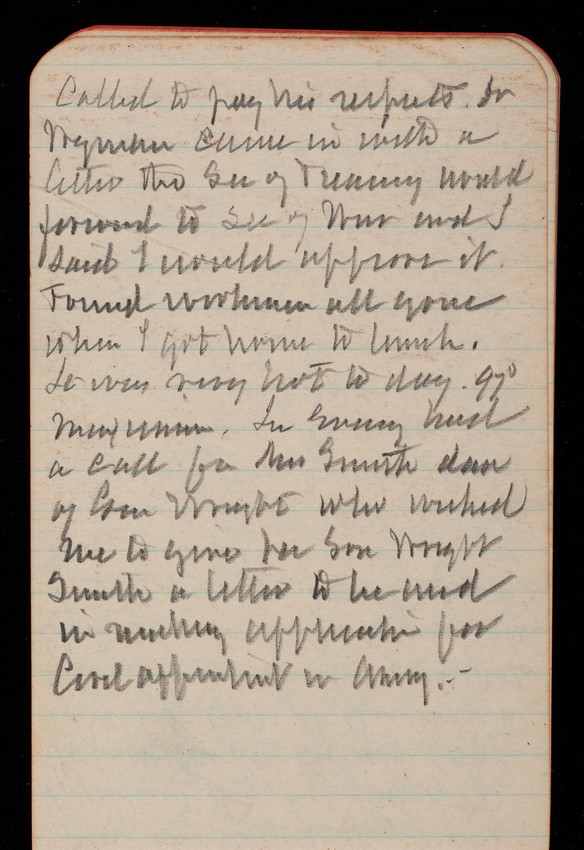 Called to pay his respects. Dr
Wyman came in with a
letter the Sec of Treasury would
forward to Sec of War and I
said I would approve it.
Found workmen all gone
when I got home to lunch.
It was very hot to day. 97°
maximum. In Evening had
a call for Mrs Smith dau
of Com Wright who wished
me to give her Son Wright
Smith a letter to be used
in making application for
Civil appointmt in Army.-